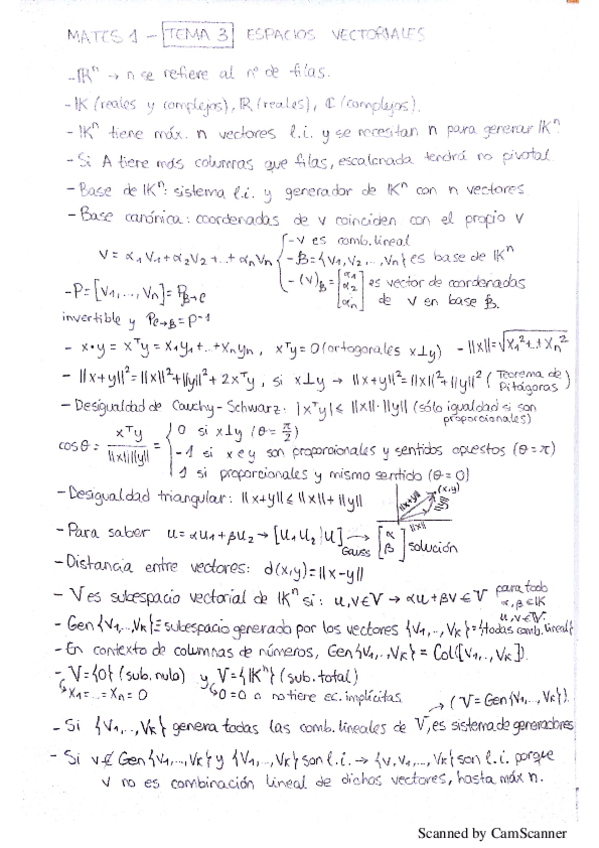 MATES 1 - TEMA 3 ESPACIOS VECTORIALES
- ℝⁿ → n se refiere al nº de filas.
- 𝕂 (reales y complejos), ℝ (reales), ℂ (complejos).
- 𝕂ⁿ tiene máx. n vectores l.i. y se necesitan n para generar 𝕂ⁿ.
- Si A tiene más columnas que filas, escalonada tendrá no pivotal.
- Base de 𝕂ⁿ: sistema l.i. y generador de 𝕂ⁿ con n vectores.
- Base canónica: coordenadas de v coinciden con el propio v
- v es comb. lineal
V = α₁V₁+α₂V₂+...+αₙVₙ { - β={V₁,V₂,...,Vₙ} es base de 𝕂ⁿ
- (V)β = [α₁ α₂ αₙ] es vector de coordenadas de v en base β.
- P=[V₁,...,Vₙ]=Pβ→e
invertible y Pe→β=P⁻¹
- x•y = xᵀy = x₁y₁+...+xₙyₙ, xᵀy=0 (ortogonales x⊥y) - ||x||=√x₁²+...+xₙ²
- ||x+y||²=||x||²+||y||²+2xᵀy, si x⊥y → ||x+y||²=||x||²+||y||² (Teorema de Pitágoras)
- Desigualdad de Cauchy-Schwarz: |xᵀy| ≤ ||x||·||y|| (sólo igualdad si son proporcionales)
cosθ = xᵀy / ||x||||y|| = { 0 si x⊥y (θ = π/2)
-1 si x e y son proporcionales y sentidos opuestos (θ=π)
1 si proporcionales y mismo sentido (θ=0)
- Desigualdad triangular: ||x+y|| ≤ ||x||+||y|| ||x+y|| (x,y) ||y|| ||x||
- Para saber u=αu₁+βu₂ → [u₁ u₂ | u] → Gauss [α β] solución
- Distancia entre vectores: d(x,y)=||x-y||
- V es subespacio vectorial de 𝕂ⁿ si: u,v∈V → αu+βv∈V para todo α,β∈𝕂 u,v∈V.
- Gen{V₁,...,Vₖ}≡subespacio generado por los vectores {V₁,...,Vₖ}={todas comb. lineal}
- En contexto de columnas de números, Gen{V₁,...,Vₖ} = Col([V₁,...,Vₖ]).
- V={0} (sub. nulo) y V={𝕂ⁿ} (sub. total)
↳ x₁=...=xₙ=0 ↳ 0=0 o no tiene ec. implícitas. → (V=Gen{V₁,...,Vₖ}).
- Si {V₁,...,Vₖ} genera todas las comb. lineales de V, es sistema de generadores
- Si v∉Gen{V₁,...,Vₖ} y {V₁,...,Vₖ} son l.i. → {V,V₁,...,Vₖ} son l.i. porque
v no es combinación lineal de dichos vectores, hasta máx n.
Scanned by CamScanner